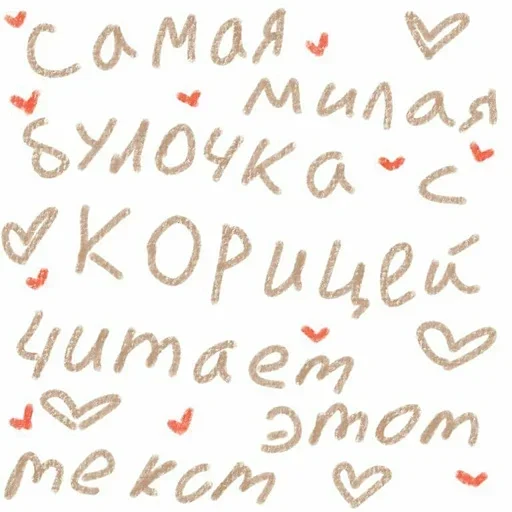 Самая
милая
булочка с
корицей
читает
этот
текст